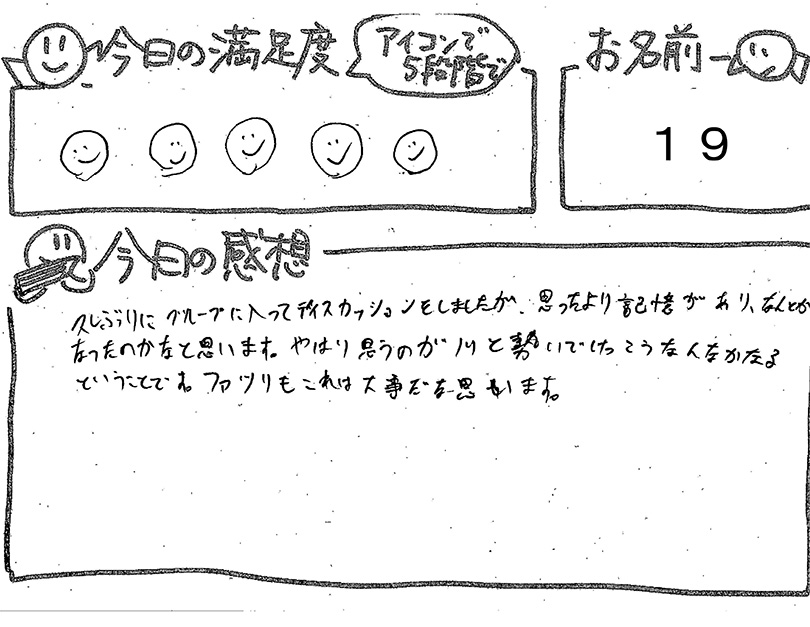 今日の満足度
アイコンで
5段階で
お名前
19
今日の感想
久しぶりにグループに入ってディスカッションをしましたが、思ったより記憶があり、なんとか
なったのかなと思います。やはり思うのがノリと勢いでけっこうなんなかなる
ということです。ファシリもこれは大事だなと思います。